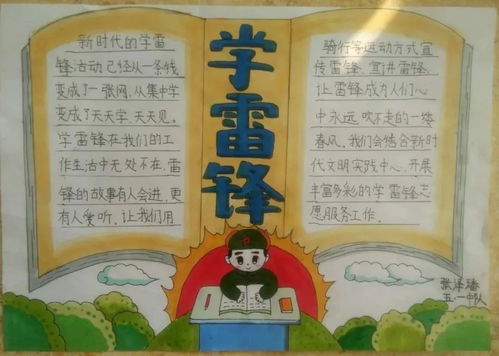 学雷锋
新时代的学雷
锋活动已经从一条线
变成了一张网，从集中学
变成了天天学、天天见。
学雷锋在我们的工
作生活中无处不在，雷
锋的故事有人会进，更
有人爱听。让我们用
骑行等运动方式宣
传雷锋、宣讲雷锋，
让雷锋成为人们心
中永远吹不走的一缕
春风。我们会结合新时
代文明实践中心，开展
丰富多彩的学雷锋志
愿服务工作。
张泽璠
五·一中队